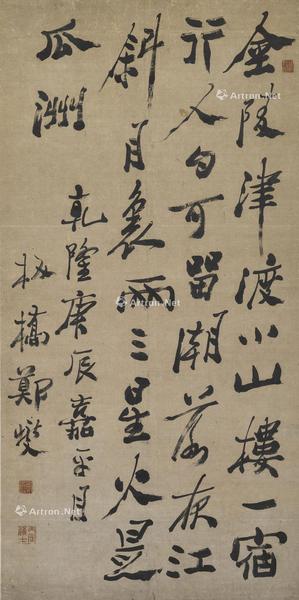 金陵津渡小山樓一宿
行人自可留潮落夜江
斜月裏兩三星火是
瓜洲
乾隆庚辰嘉平月
板橋鄭燮
Artron.Net
Artron.Net
Artron.Net
Artron.Net
Artron.Net
Artron.Net